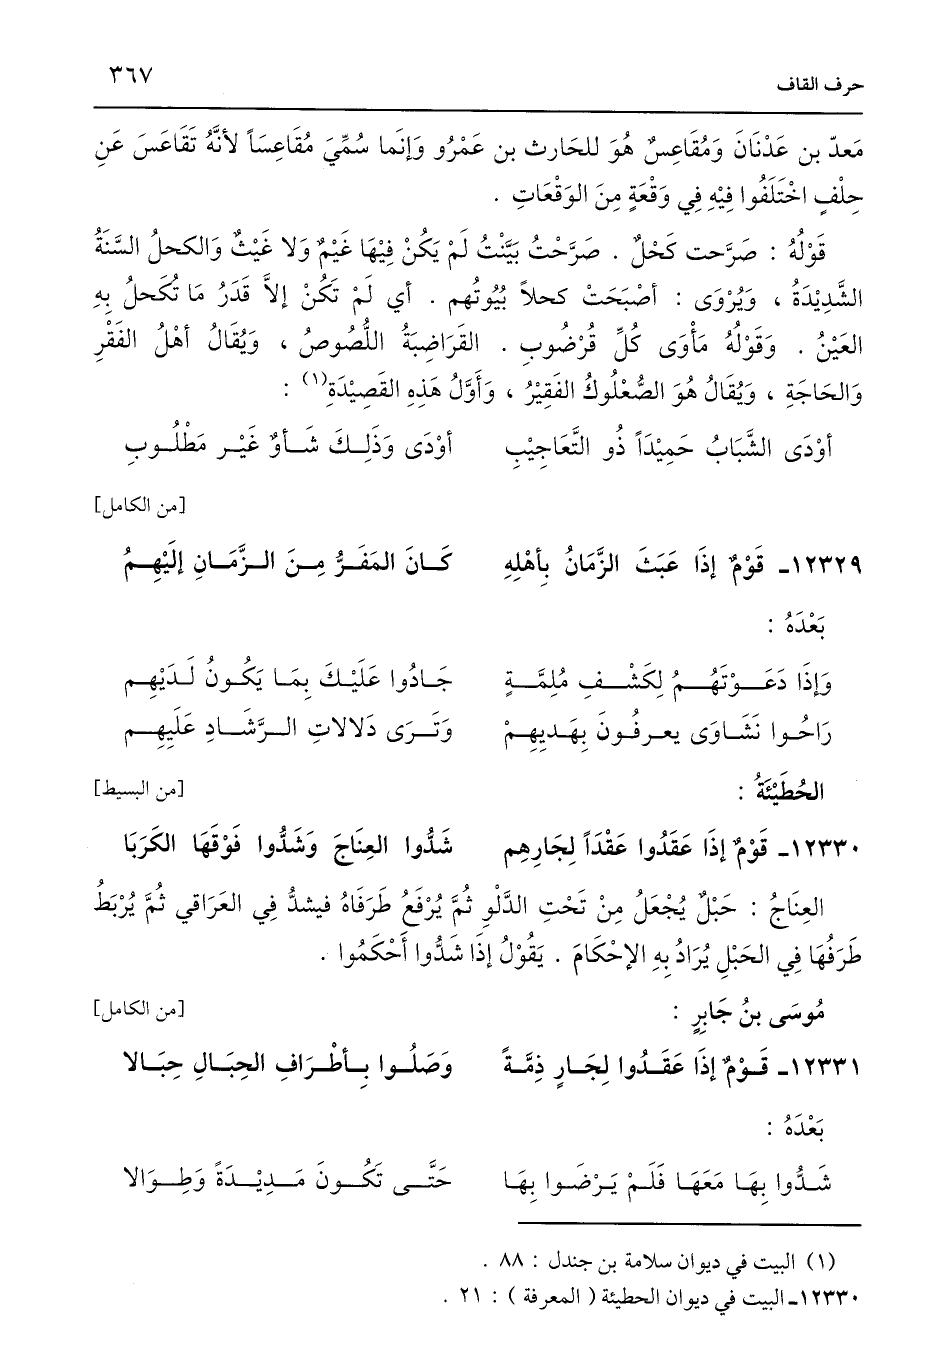 حرف القاف ٣٦٧
مَعدّ بن عَدْنَانَ وَمُقَاعِسٌ هُوَ للحَارث بن عَمْرُو وَإنَما سُمِّيَ مُقَاعِسَاً لأنَّهُ تَقَاعَسَ عَنِ
حِلْفٍ اخْتَلَفُوا فِيْهِ فِي وَقْعَةٍ مِنَ الوَقْعَاتِ .
قَوْلُهُ : صَرَّحت كَحْلٌ . صَرَّحْتُ بَيَّنْتُ لَمْ يَكُنْ فِيْهَا غَيْمٌ وَلا غَيْثٌ وَالكحلُ السَّنَةُ
الشَّدِيْدَةُ ، وَيُرْوَى : أصْبَحَتْ كحلاً بُيُوتُهم . أي لَمْ تَكُنْ إلاَّ قَدَرُ مَا تُكَحلُ بِهِ
العَيْنُ . وَقَوْلُهُ مَأوَى كُلِّ قُرْضُوبٍ . القَرَاضِبَةُ اللُّصُوصُ ، وَيُقَالُ أهْلُ الفَقْرِ
وَالحَاجَةِ ، وَيُقَالُ هُوَ الصُّعْلُوكُ الفَقِيْرُ ، وَأوَّلُ هَذِهِ القَصِيْدَةِ(١) :
أوْدَى الشَّبَابُ حَمِيْدَاً ذُو التَّعَاجِيْبِ أوْدَى وَذَلِكَ شَأوٌ غَيْر مَطْلُوبِ
[من الكامل]
١٢٣٢٩ـ قَوْمٌ إذَا عَبَثَ الزَّمَانُ بأهْلِهِ كَانَ المَفَرُّ مِنَ الزَّمَانِ إلَيْهِمُ
بَعْدَهُ :
وَإذَا دَعَوْتَهُمُ لِكَشْفِ مُلِمَّةٍ جَادُوا عَلَيْكَ بِمَا يَكُونُ لَدَيْهِمِ
رَاحُوا نَشَاوَى يعرفُونَ بِهَديهِمْ وَتَرَى دَلالاتِ الرَّشَادِ عَلَيْهِم
الحُطَيْئَةُ : [من البسيط]
١٢٣٣٠ـ قَوْمٌ إذَا عَقَدُوا عَقْدَاً لجَارِهِم شَدُّوا العِنَاجَ وَشَدُّوا فَوْقَهَا الكَرَبَا
العِنَاجُ : حَبْلٌ يُجْعَلُ مِنْ تَحْتِ الدَّلْوِ ثُمَّ يُرْفَعُ طَرَفَاهُ فيشدُّ فِي العَرَاقي ثُمَّ يُرْبَطُ
طَرَفُهَا فِي الحَبْلِ يُرَادُ بِهِ الإحْكَامَ . يَقُولُ إذَا شَدُّوا أحْكَمُوا .
مُوسَى بنُ جَابِرٍ : [من الكامل]
١٢٣٣١ـ قَوْمٌ إذَا عَقَدُوا لِجَارٍ ذِمَّةً وَصَلُوا بِأطْرَافِ الحِبَالِ حِبَالا
بَعْدَهُ :
شَدُّوا بِهَا مَعَهَا فَلَمْ يَرْضَوا بِهَا حَتَّى تَكُونَ مَدِيْدَةً وَطِوَالا
(١) البيت في ديوان سلامة بن جندل : ٨٨ .
١٢٣٣٠ـ البيت في ديوان الحطيئة ( المعرفة ) : ٢١ .